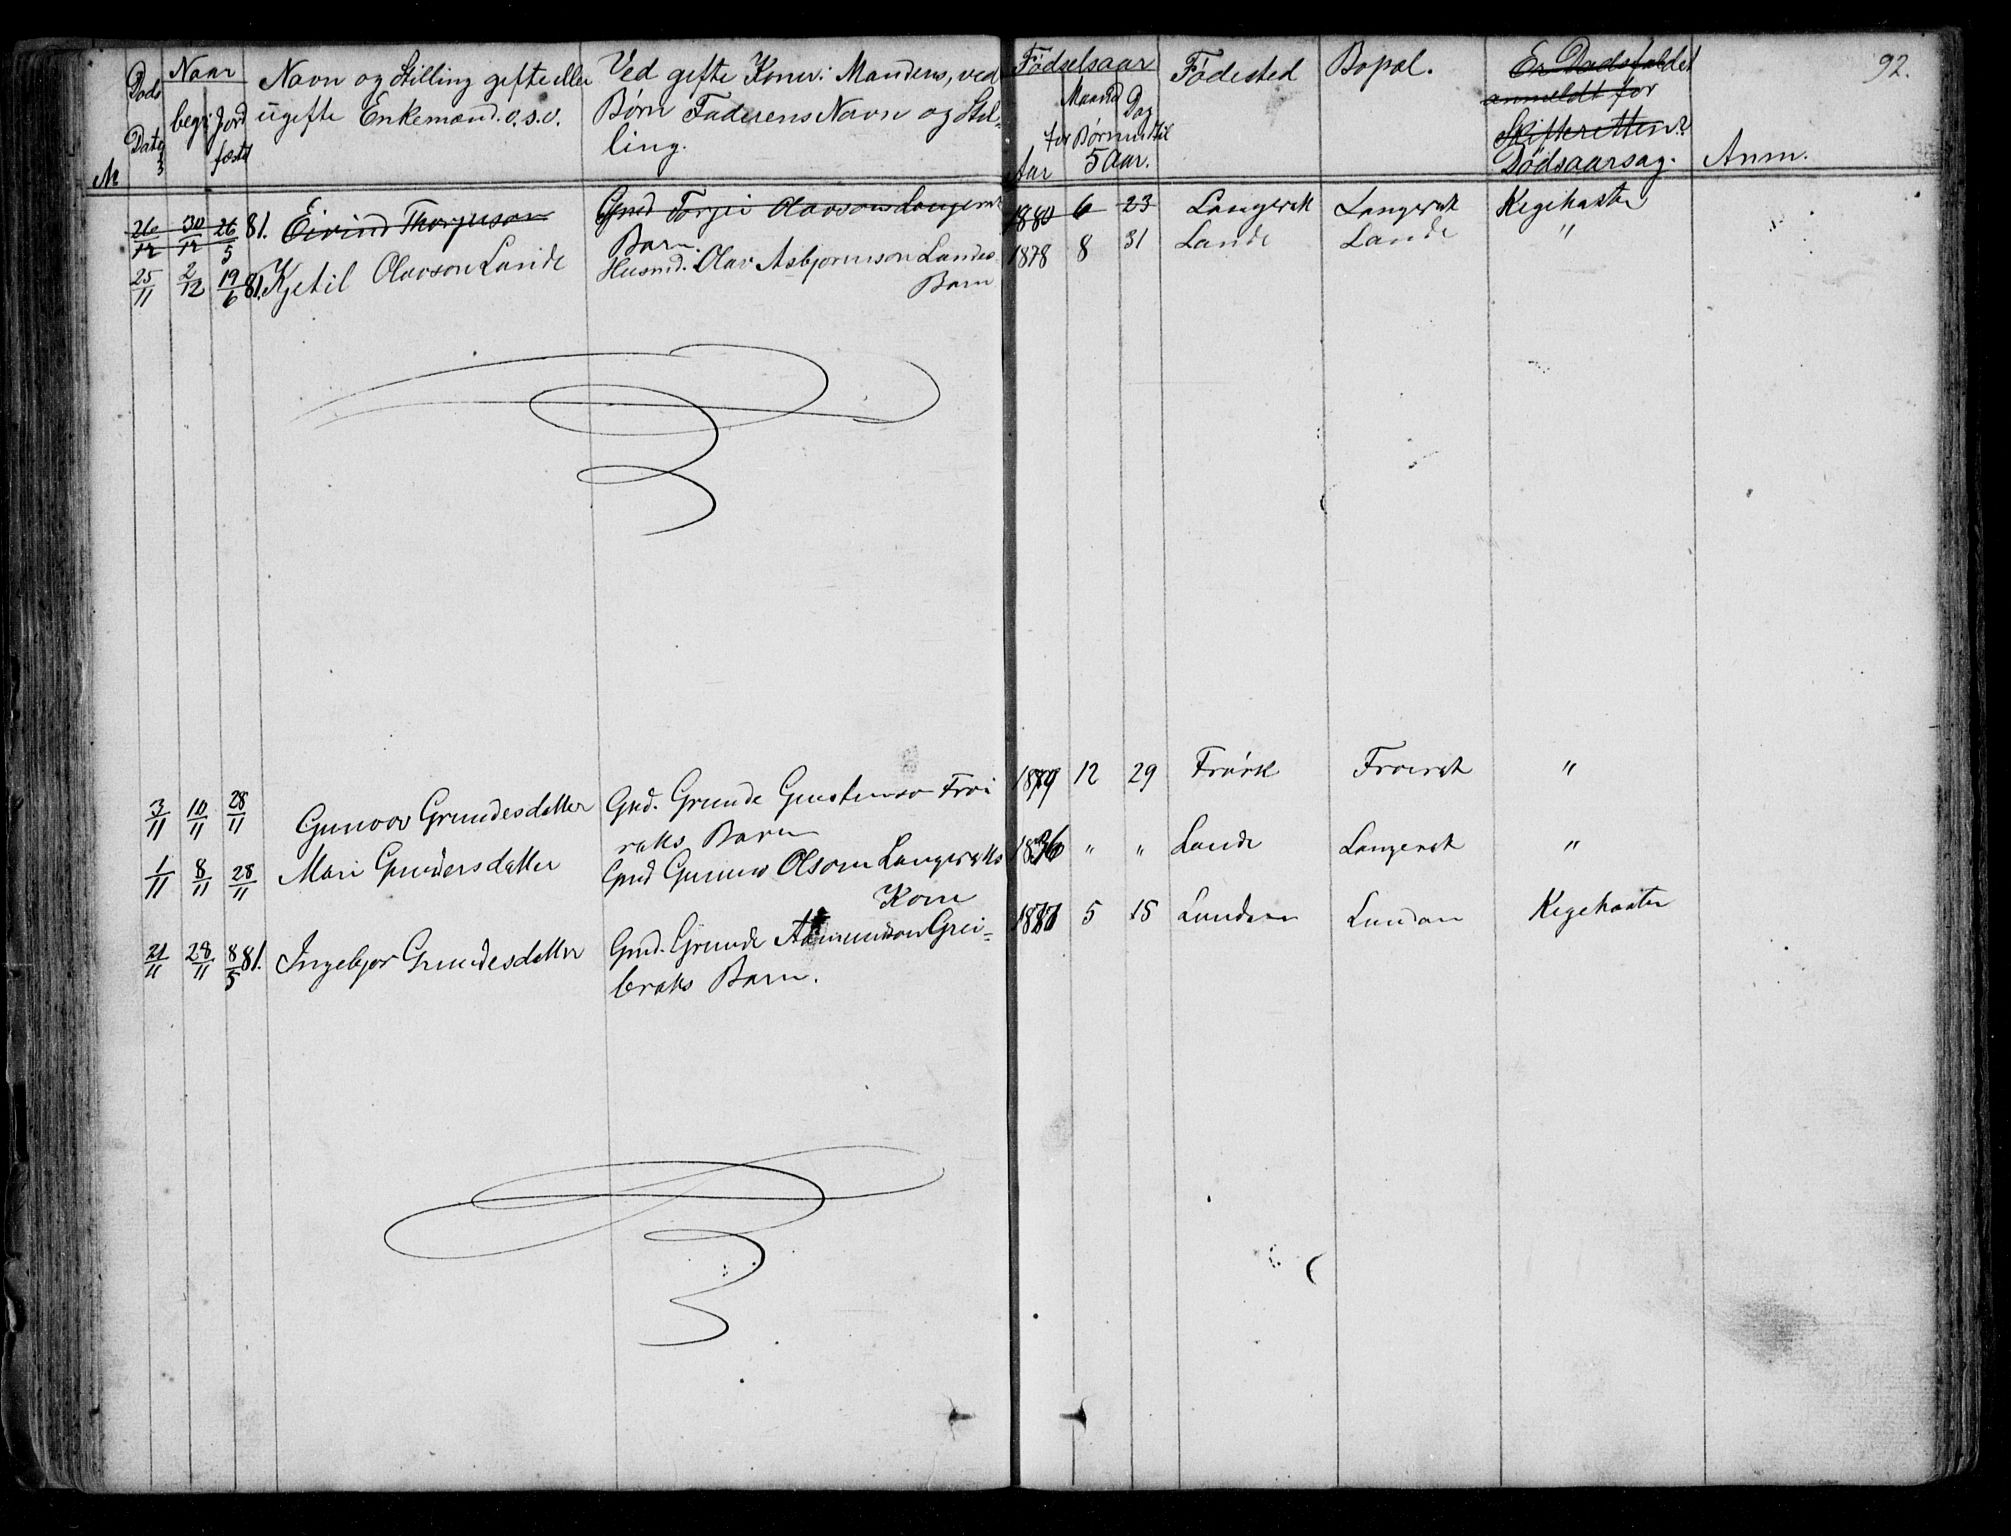 92.
Døds Dato
Naar
begr. Jordfæstet
Navn og Stilling gifte eller ugifte Enkemænd. o.s.v.
Ved gifte Koner: Mandens, ved Børn Faderens Navn og Stilling.
Fødselsaar
Aar
Maaned Dag
for Børn indtil 5 Aar.
Fødested
Bopæl.
Er Dødsfaldet anmeldt for Skifteretten?
Dødsaarsag.
Anm.
M
26/12 30/12 26/5 81. Eivind Thorjusson Gmd Torjei Olavsons Langerak 1880 6 23 Langerak Langerak Kigehoste
Barn.
25/11 2/12 19/6 81. Kjetil Olavson Lande Husmd. Olav Asbjørnson Landes 1878 8 31 Lande Lande "
Barn
3/11 10/11 28/11 Gunvor Grundesdatter Gmd. Grunde Gunstenson Frøi 1879 12 29 Frøirk Frøirak "
raks Barn
1/11 8/11 28/11 Mari Gundersdatter Gmd Gunnar Olsson Langeraks 1836 " " Lande Langerak "
Kone
21/11 28/11 8/5 81. Ingebjør Grundesdatter Gmd. Grunde Aamundson Grei= 1877 5 15 Lunden Lunden Kigehoste
braks Barn.